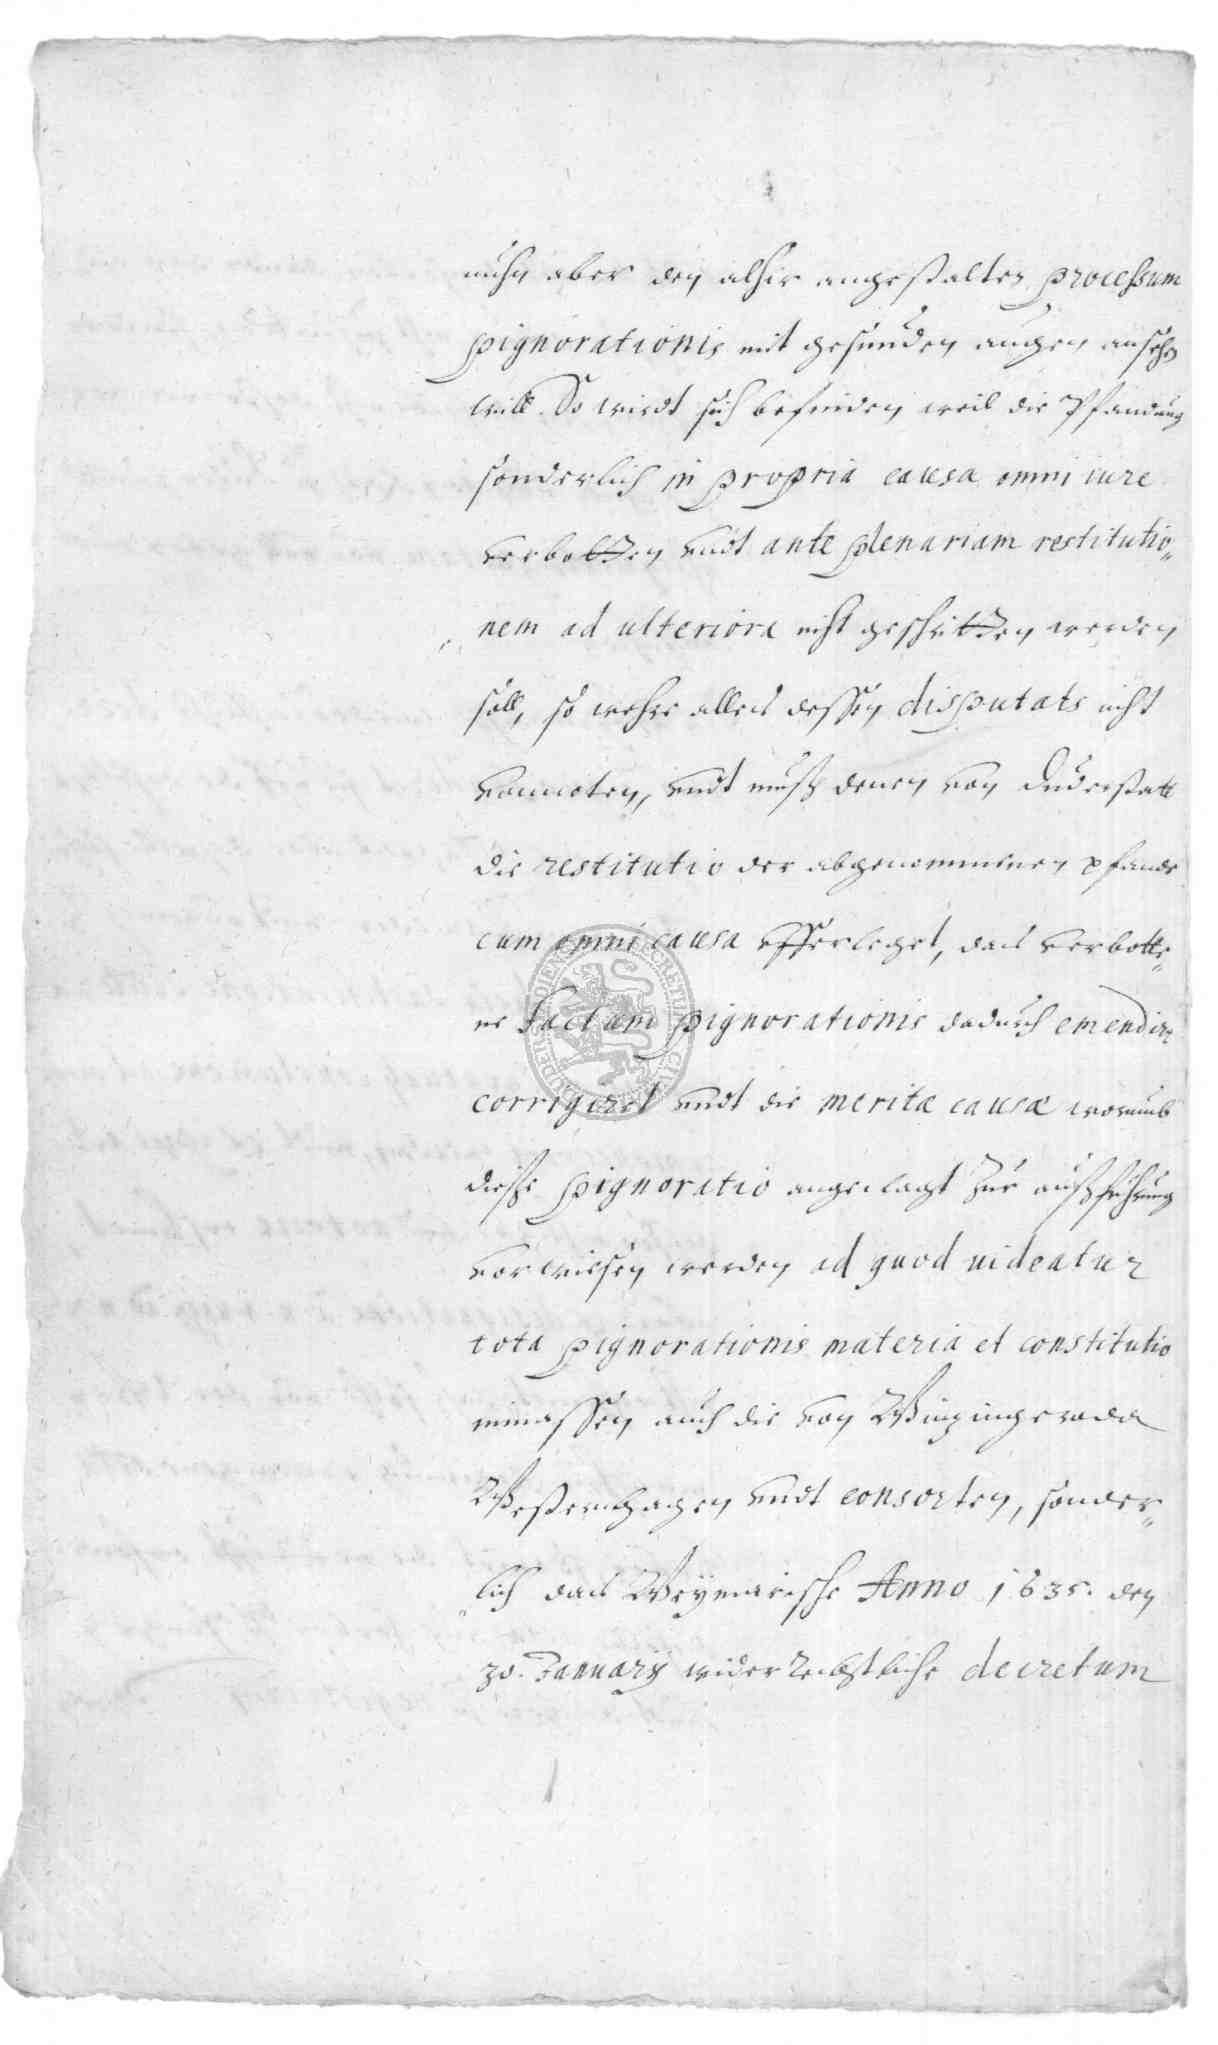 nuhn aber den alhir angestalten processum
pignorationis mit gesunden augen ansehen
will. So wirdt sich befinden weil die Pfandung
sonderlich in propria causa omni iure
verbotten undt ante plenariam restitutio„
nem ad ulteriora nicht geschritten werden
soll, so wehre alles dessen disputats nicht
vonnoten, undt muß denen von Duderstatt
die restitutio der abgenommenen pfande
cum omni causa ufferleget, das verbotte„
ne factum pignorationis dadurch emendirt
corrigiret undt die merita causae warumb
dieße pignoratio angelagt zur außführung
vorwiesen werden ad quod uideatur
tota pignorationis materia et constitutio
inmassen auch die von Wintzingeroda
Westernhagen undt consorten, sonder„
lich das Weymarische Anno 1635. den
30. January widerrechtliche decretum